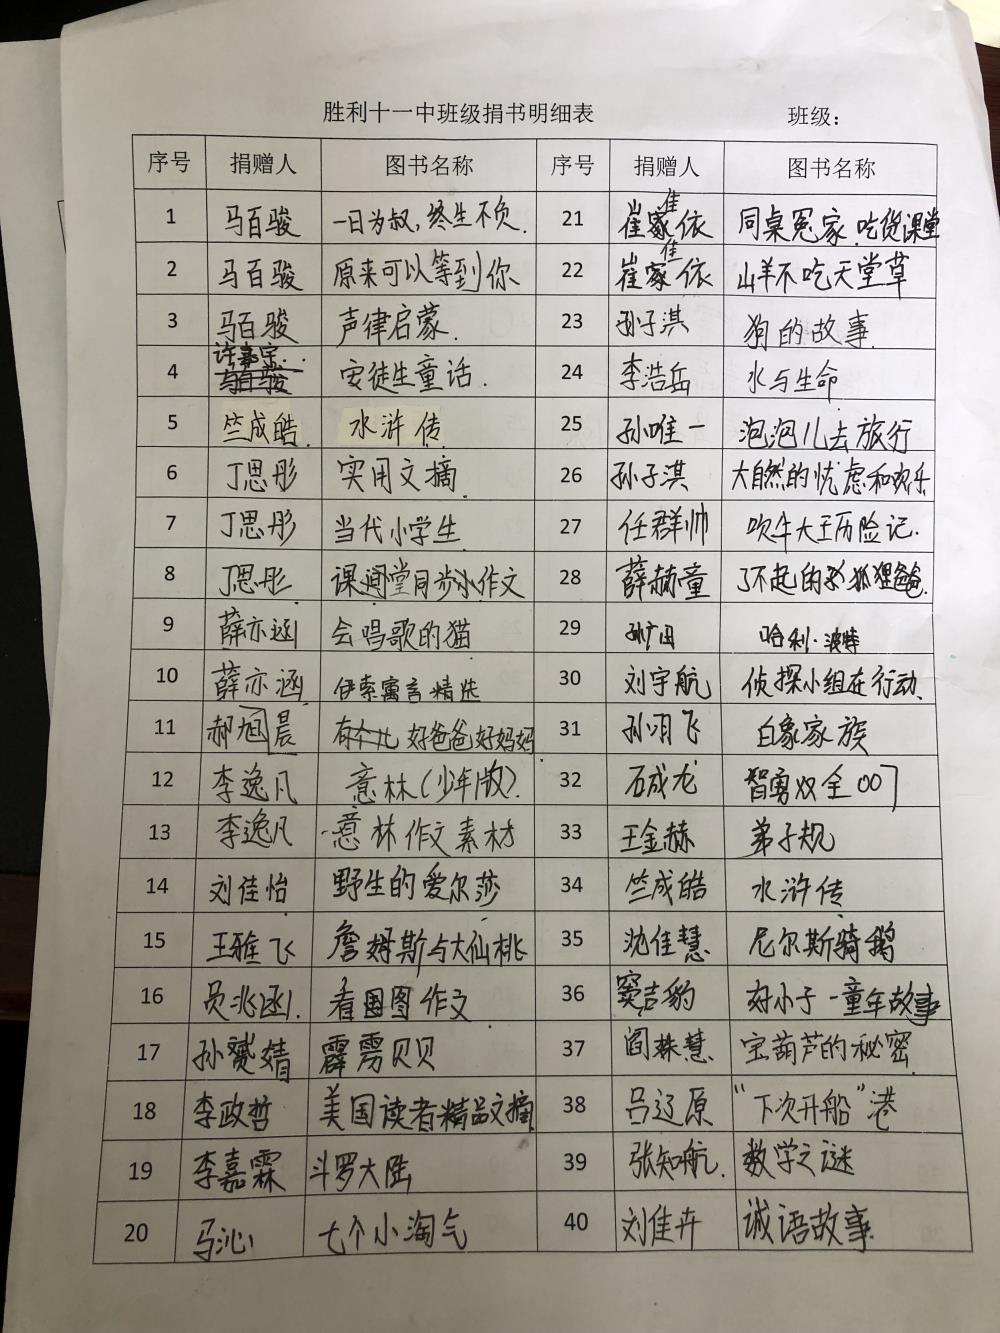 胜利十一中班级捐书明细表 班级：
序号 捐赠人 图书名称 序号 捐赠人 图书名称
1 马百骏 一日为叔，终生不负. 21 崔家佳依 同桌冤家.吃货课堂
2 马百骏 原来可以等到你 22 崔家佳依 山羊不吃天堂草
3 马百骏 声律启蒙. 23 孙子淇 狗的故事.
4 马百骏 安徒生童话. 24 李浩岳 水与生命
5 竺成皓. 水浒传. 25 孙唯一 泡泡儿去旅行
6 丁思彤 实用文摘. 26 孙子淇 大自然的忧虑和欢乐
7 丁思彤 当代小学生. 27 任群帅 吹牛大王历险记.
8 丁思彤 课堂同步小作文 28 薛赫童 了不起的狐狸爸爸.
9 薛亦涵 会唱歌的猫 29 哈利·波特
10 薛亦涵 伊索寓言精选 30 刘宇航 侦探小组在行动.
11 郝旭晨 好爸爸好妈妈 31 孙羽飞 白象家族
12 李逸凡 意林(少年版). 32 石成龙 智勇双全007
13 李逸凡 意林作文素材 33 王金赫 弟子规
14 刘佳怡 野生的爱尔莎 34 竺成皓 水浒传
15 王雅飞 詹姆斯与大仙桃 35 沈佳慧 尼尔斯骑鹅
16 员兆函. 看图作文 36 窦吉豹 好小子-童年故事
17 孙婧 霹雳贝贝 37 阎姝慧. 宝葫芦的秘密.
18 李政哲 美国读者精品文摘 38 吕辽原 “下次开船”港
19 李嘉霖 斗罗大陆 39 张知航. 数学之谜
20 马沁 七个小淘气 40 刘佳卉 诚语故事.